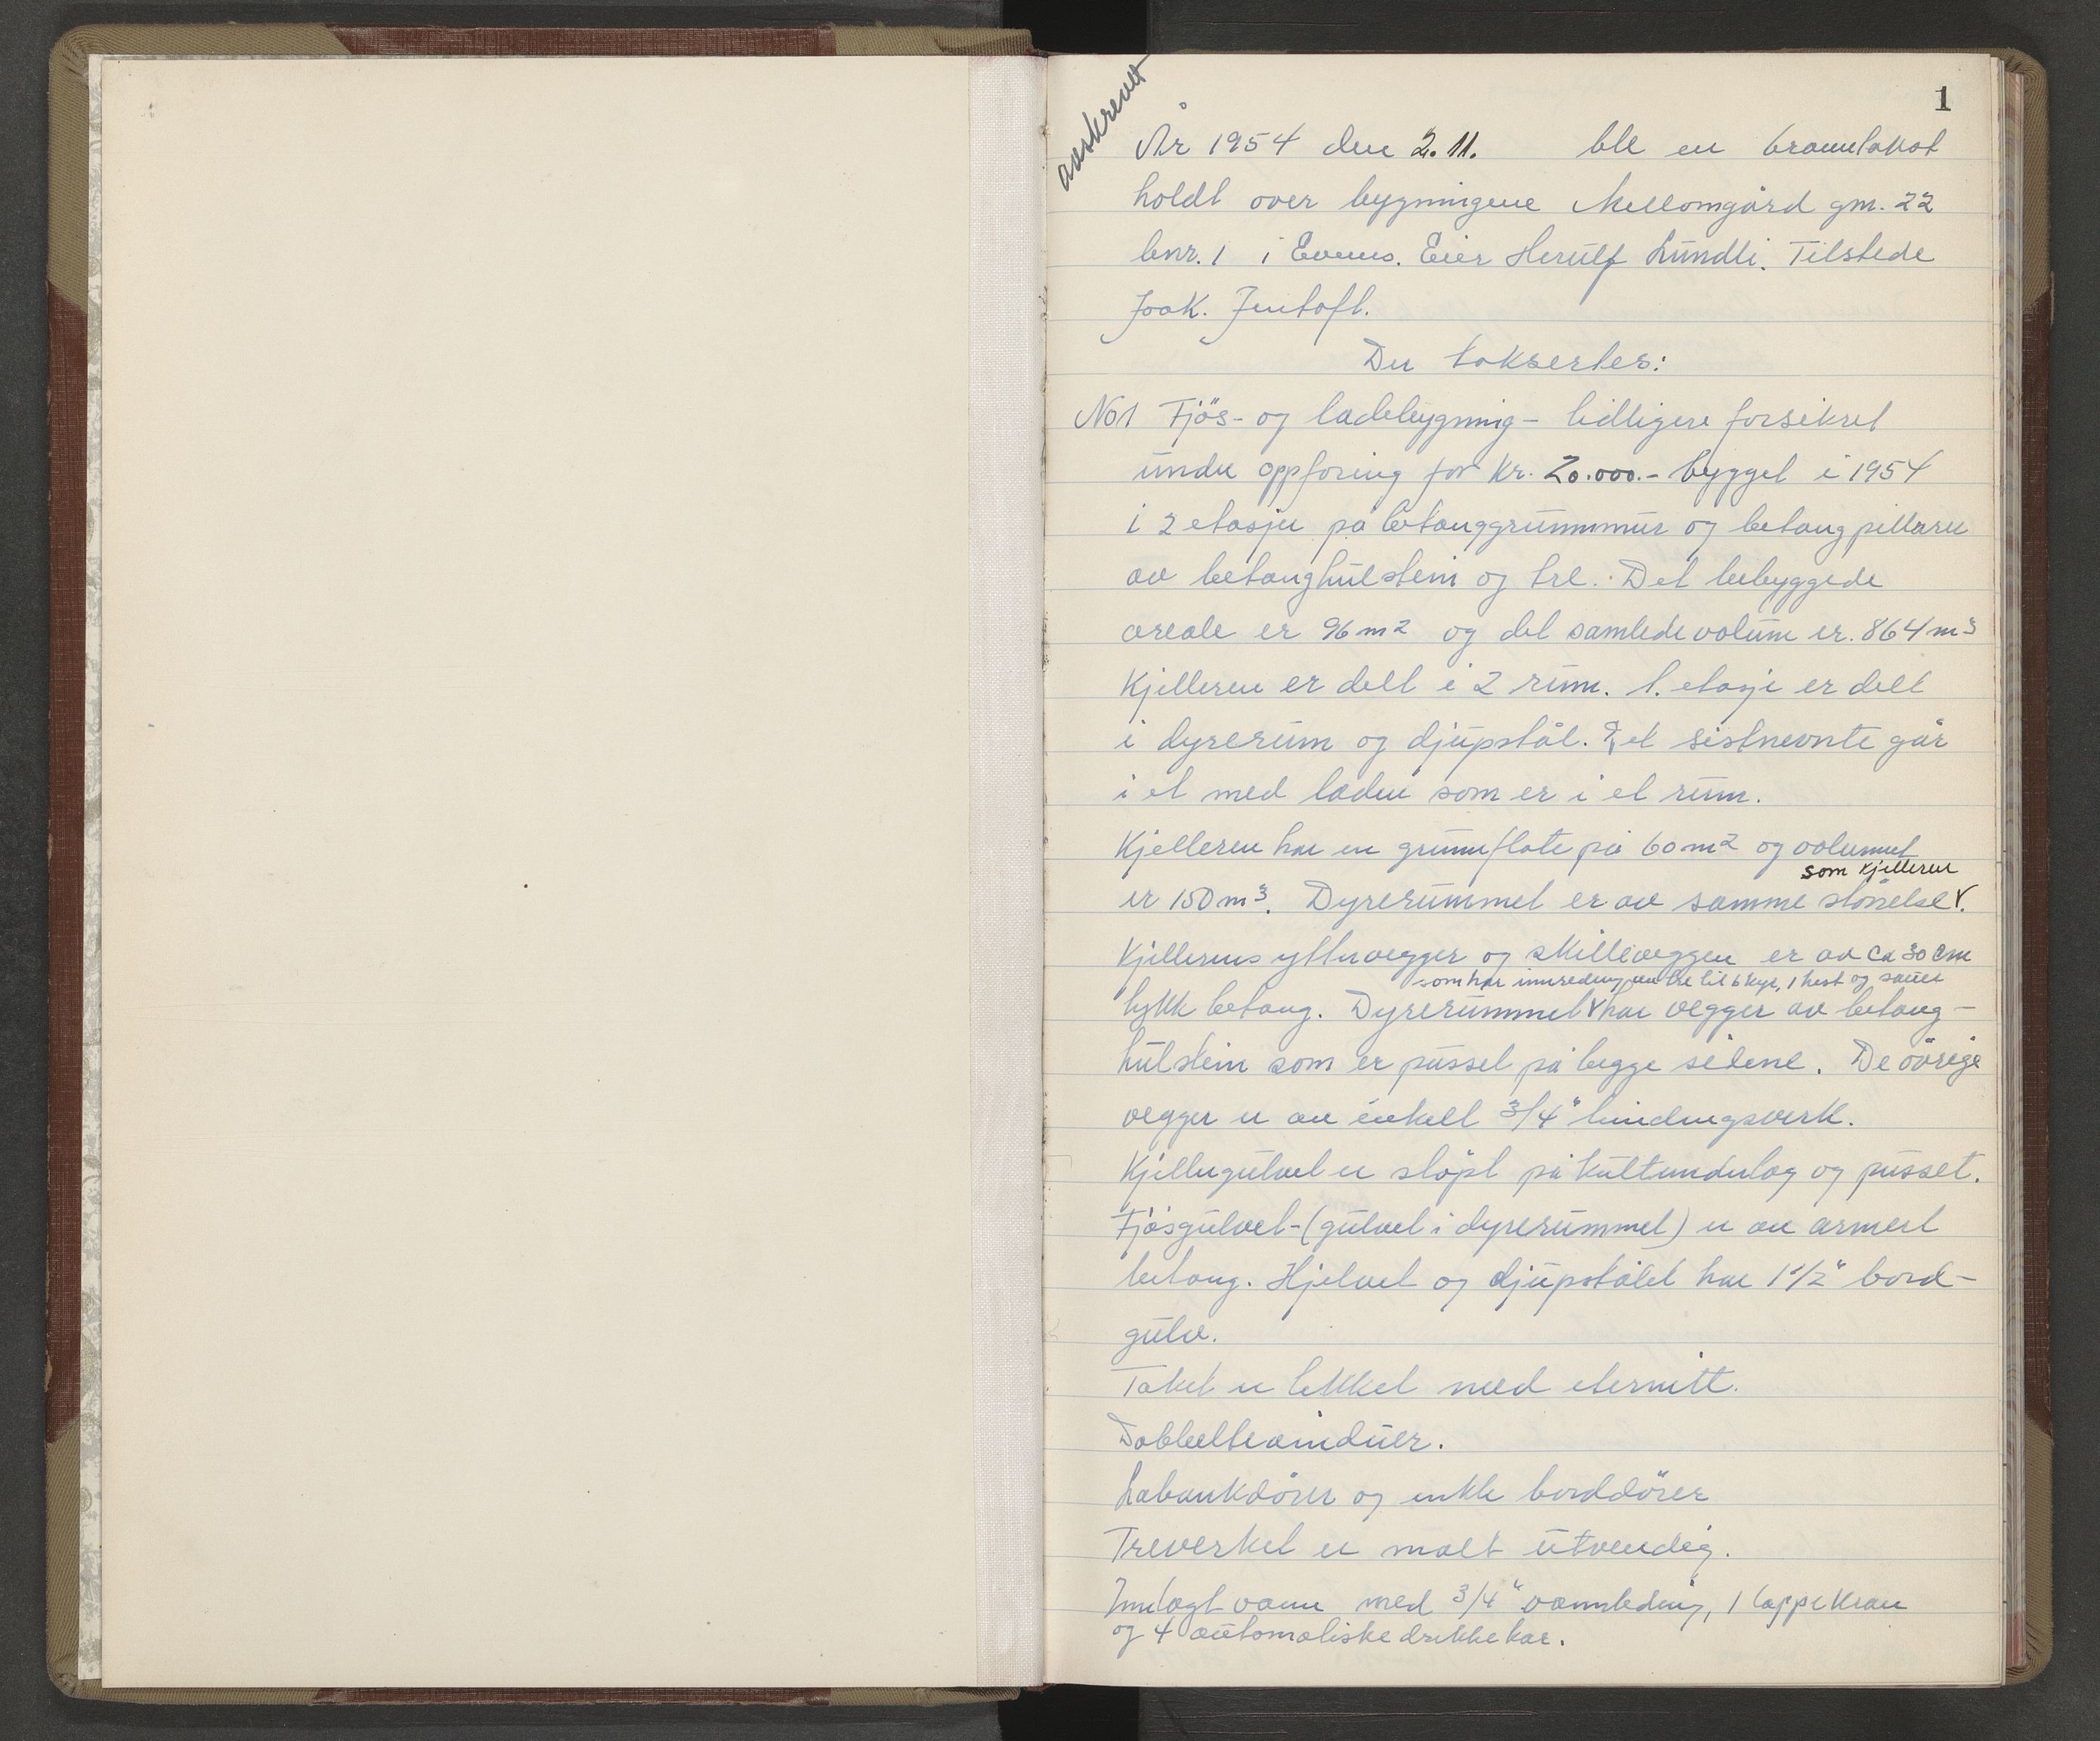 1
avskrevet
År 1954 den 2. 11. ble en branntakst
holdt over bygningene Mellomgård gnr. 22
bnr. 1 i Evenes. Eier Herulf Lundli. Tilstede
Joak. Jentoft.
Der taksertes:
No 1 Fjös- og ladebygning - tidligere forsikret
under oppföring for kr. 20.000.- bygget i 1954
i 2 etasjer på betonggrunnmur og betongpillarer
av betonghulstein og tre. Det bebyggede
areale er 96 m2 og det samlede volum er. 864 m3
Kjelleren er delt i 2 rum. 1. etasje er delt
i dyrerum og djupstål. Det sistnevnte går
i et med laden som er i et rum.
Kjelleren har en grunnflate på 60 m2 og volumet
som kjelleren
er 150 m3. Dyrerummet er av samme störrelse.
Kjellerens yttervegger og skilleveggen er av ca 30 cm
som har innredning av tre til 6 kyr, 1 hest og sauer
tykk betong. Dyrerummet har vegger av betong-
hulstein som er pusset på begge sidene. De övrige
vegger er av enkelt 3/4" bindingsverk.
Kjellergulvet er stöpt på kultunderlag og pusset.
Fjösgulvet - (gulvet i dyrerummet) er av armert
betong. Hjelvet og djupstålet har 1 1/2" bord-
gulv.
Taket er tekket med eternitt.
Dobbeltevinduer.
Labankdörer og enkle borddörer
Treverket er malt utvendig.
Innlagt vann med 3/4" vannledning, 1 tappekran
og 4 automatiske drikkekar.